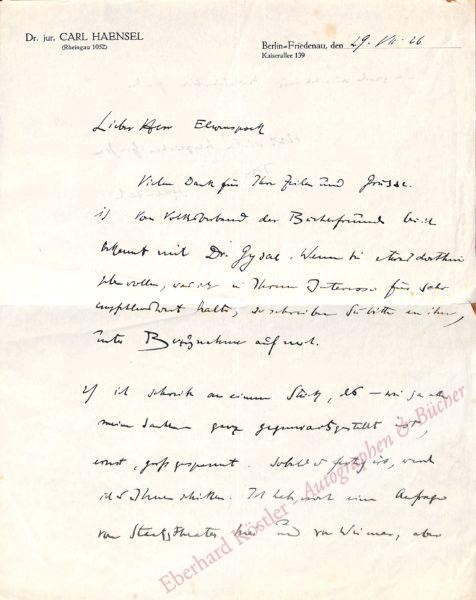 Dr. jur. CARL HAENSEL
(Rheingau 1052)
Berlin-Friedenau, den 29. VII. 26
Kaiserallee 139
Lieber Herr Elwenspoek
Vielen Dank für Ihre Zeilen und Grüsse.
1) Vom Volksverband der Bücherfreunde bin ich
bekannt mit Dr. Gysae. Wenn Sie etwas dorthin
geben wollen, was ich in Ihrem Interesse für sehr
empfehlenswert halte, so schreiben Sie bitte an ihn,
unter Bezugnahme auf mich.
2) ich schreibe an einem Stück, das — wie ja alle
meine Sachen ganz gegenwartsgestellt ist,
ernst, gross gespannt. Sobald es fertig ist, werde
ich es Ihnen schicken. Ich habe eine Anfrage
vom Staatstheater, hier und von Weimar, aber
Eberhard Köstler - Autographen & Bücher